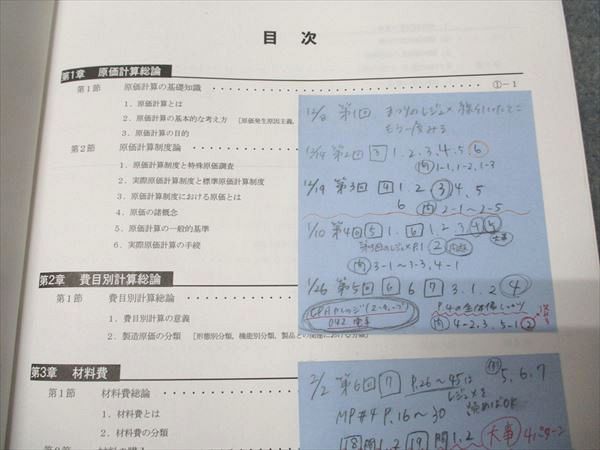 目 次
第1章 原価計算総論
第1節 原価計算の基礎知識 ①-1
1．原価計算とは
2．原価計算の基本的な考え方 [原価発生原因主義,
3．原価計算の目的
第2節 原価計算制度論
1．原価計算制度と特殊原価調査
2．実際原価計算制度と標準原価計算制度
3．原価計算制度における原価とは
4．原価の諸概念
5．原価計算の一般的基準
6．実際原価計算の手続
第2章 費目別計算総論
第1節 費目別計算総論
1．費目別計算の意義
2．製造原価の分類 [形態別分類, 機能別分類, 製品との関連における分類]
第3章 材料費
第1節 材料費総論
1．材料費とは
2．材料費の分類
第1回
もう一度みる
12/14 第2回 3 1.2.3.4.5 6
問 1-1, 1-2, 1-3
12/19 第3回 4 1.2 3 4.5
6 問 2-1~2-5
1/10 第4回 5 1. 6 1.2.3 4 5
2
問 3-1~3-3, 4-1
1/26 第5回 6 6 7 3.1.2 4
042
問 4-2, 3, 5-1 2
2/2 第6回 7 P.26~45は 5,6,7
レジュメを
読めばOK
MP#4 P.16~30
18 問1,2 19 問1.2 大事 4パターン